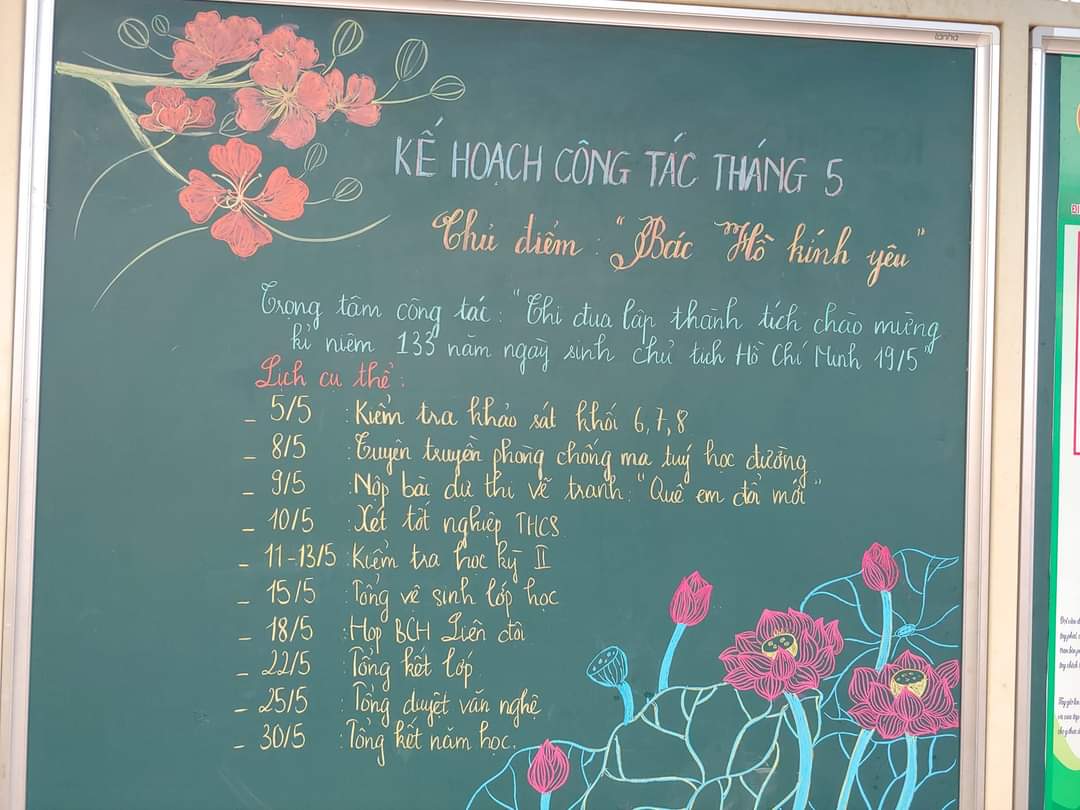 KẾ HOẠCH CÔNG TÁC THÁNG 5
Chủ điểm : "Bác Hồ kính yêu"
Trọng tâm công tác : "Thi đua lập thành tích chào mừng
kỉ niệm 133 năm ngày sinh chủ tịch Hồ Chí Minh 19/5"
Lịch cụ thể :
- 5/5 : Kiểm tra khảo sát khối 6, 7, 8
- 8/5 : Tuyên truyền phòng chống ma tuý học đường
- 9/5 : Nộp bài dự thi vẽ tranh : "Quê em đổi mới"
- 10/5 : Xét tốt nghiệp THCS
- 11-13/5 : Kiểm tra học kỳ II
- 15/5 : Tổng vệ sinh lớp học
- 18/5 : Họp BCH Liên đội
- 22/5 : Tổng kết lớp
- 25/5 : Tổng duyệt văn nghệ
- 30/5 : Tổng kết năm học.